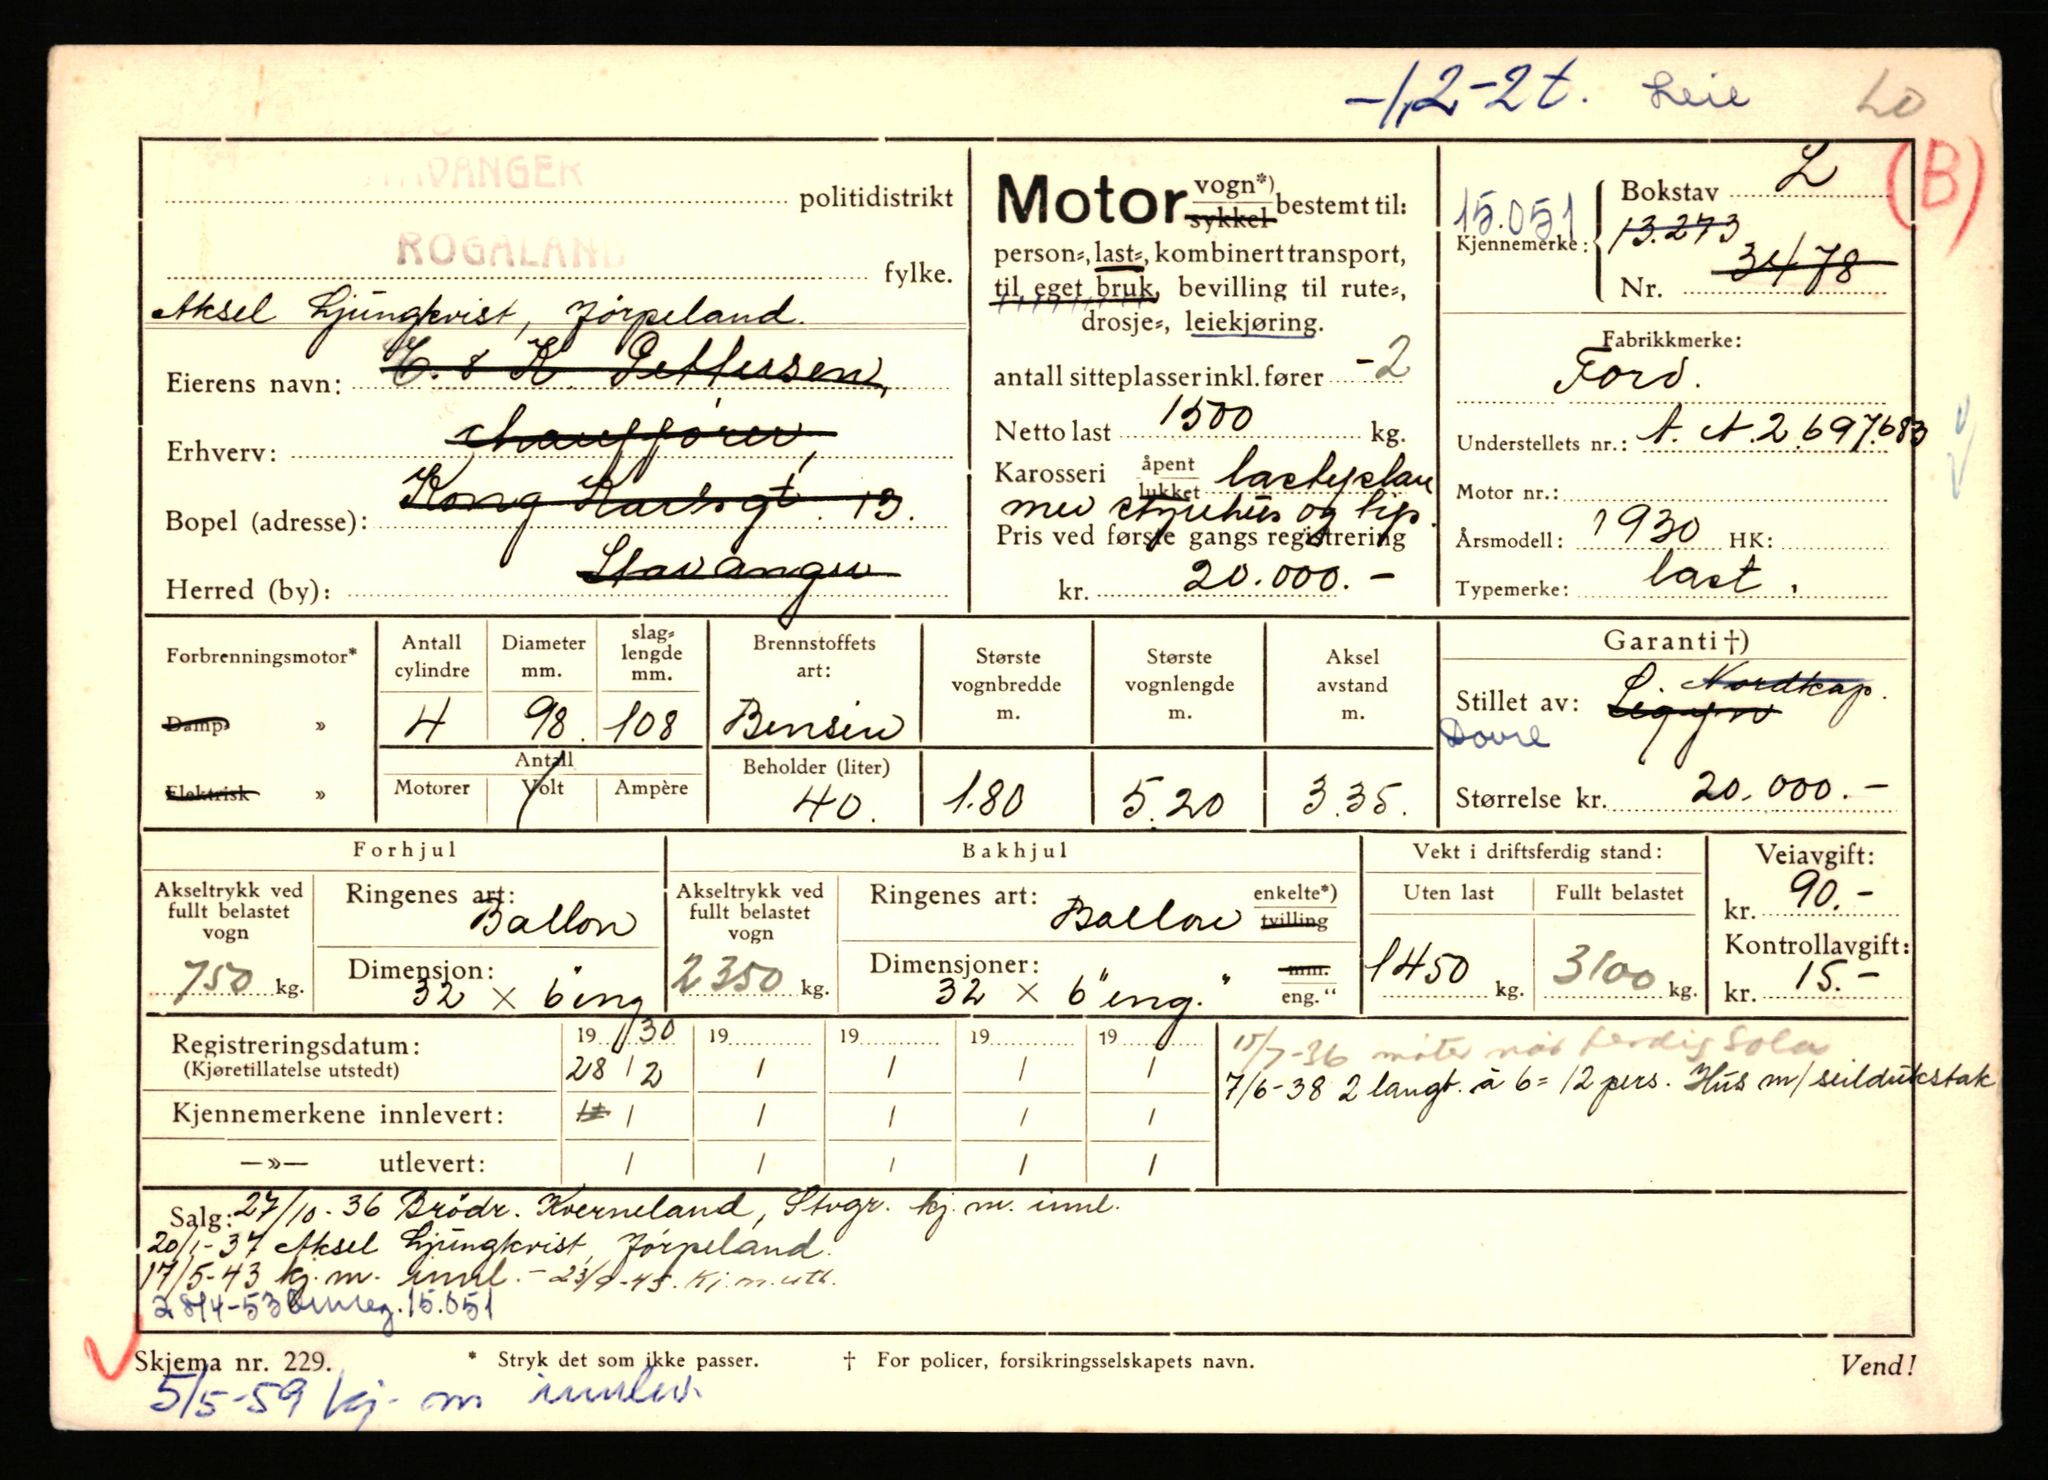 -1,2-2t. Leie LO
(B)
STAVANGER politidistrikt
ROGALAND fylke.
Aksel Ljungkvist, Jørpeland.
Eierens navn: C. & K. Pettersen,
Erhverv: chauffører,
Bopel (adresse): Kong Karlsgt. 13.
Herred (by): Stavanger
Motor vogn*) sykkel bestemt til:
person-, last-, kombinert transport,
til eget bruk, bevilling til rute-,
drosje-, leiekjøring.
antall sitteplasser inkl. fører -2
Netto last 1500 kg.
Karosseri åpent lukket lasteplan
med styrehus og tip.
Pris ved første gangs registrering
kr. 20.000.-
Bokstav L
15.051
13.273
Kjennemerke: Nr. 3478
Fabrikkmerke:
Ford.
Understellets nr.: A.A.2.697.683
Motor nr.:
Årsmodell: 1930 HK:
Typemerke: last.
Forbrenningsmotor*
Damp »
Elektrisk »
Antall cylindre 4
Diameter mm. 98.
slag-lengde mm. 108
Antall
Motorer Volt Ampère
Brennstoffets art: Bensin
Beholder (liter) 40.
Største vognbredde m. 1.80
Største vognlengde m. 5.20
Aksel avstand m. 3.35.
Garanti †)
Stillet av: L. Nordkap.
Dovre
Størrelse kr. 20.000.-
Forhjul
Akseltrykk ved fullt belastet vogn 750 kg.
Ringenes art: Ballon
Dimensjon: 32 x 6" eng
Bakhjul
Akseltrykk ved fullt belastet vogn 2350 kg.
Ringenes art: Ballon enkelte*) tvilling
Dimensjoner: 32 x 6" eng." mm. eng."
Vekt i driftsferdig stand:
Uten last 1450 kg.
Fullt belastet 3100 kg.
Veiavgift:
kr. 90.-
Kontrollavgift:
kr. 15.-
Registreringsdatum: 19 30 19 19 19 19
(Kjøretillatelse utstedt) 28/2 / / / /
Kjennemerkene innlevert: / / / / /
—»— utlevert: / / / / /
15/7-36 møter når ferdig Sola
7/6-38 2 langt. à 6 = 12 pers. Hus m/ seildukstak
Salg: 27/10-36 Brødr. Kverneland, Stvgr. kj.m. innl.
20/1-37 Aksel Ljungkvist, Jørpeland.
17/5-43 kj.m. innl. - 23/9-45. kj.m. utl.
28/4-53 omreg. 15.051
Skjema nr. 229. * Stryk det som ikke passer. † For policer, forsikringsselskapets navn. Vend!
5/5-59 kj. m innlev.